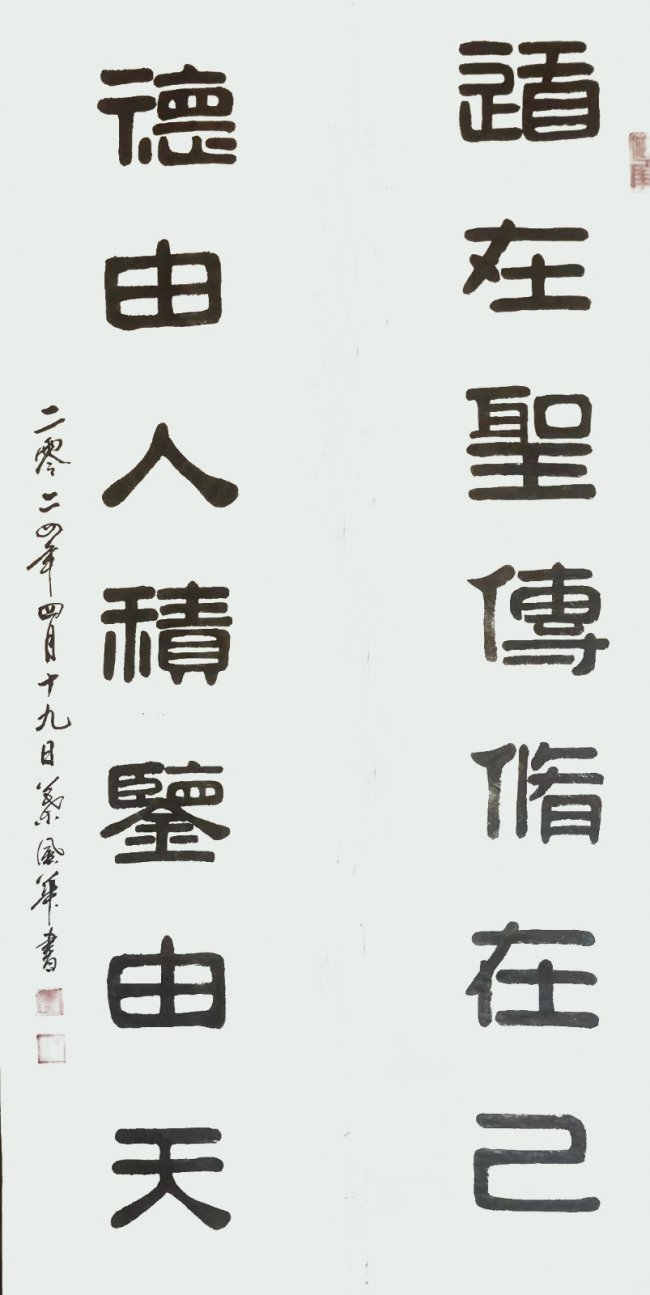 道在聖傳脩在己
德由人積鑒由天
二零二四年四月十九日葉華書